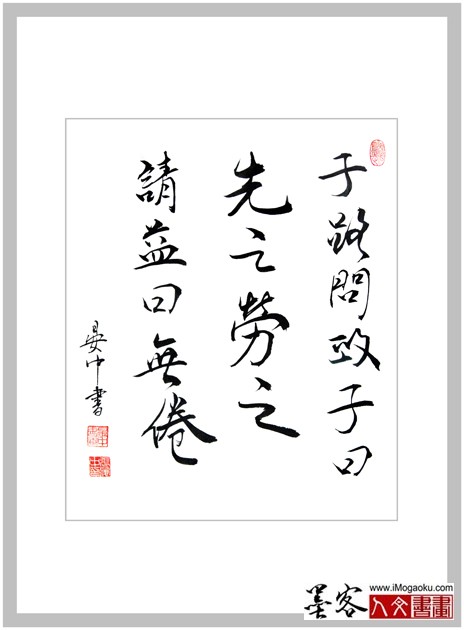 子路問政子曰
先之勞之
請益曰無倦
晏中書
墨客
www.iMogaoku.com
人文書畫